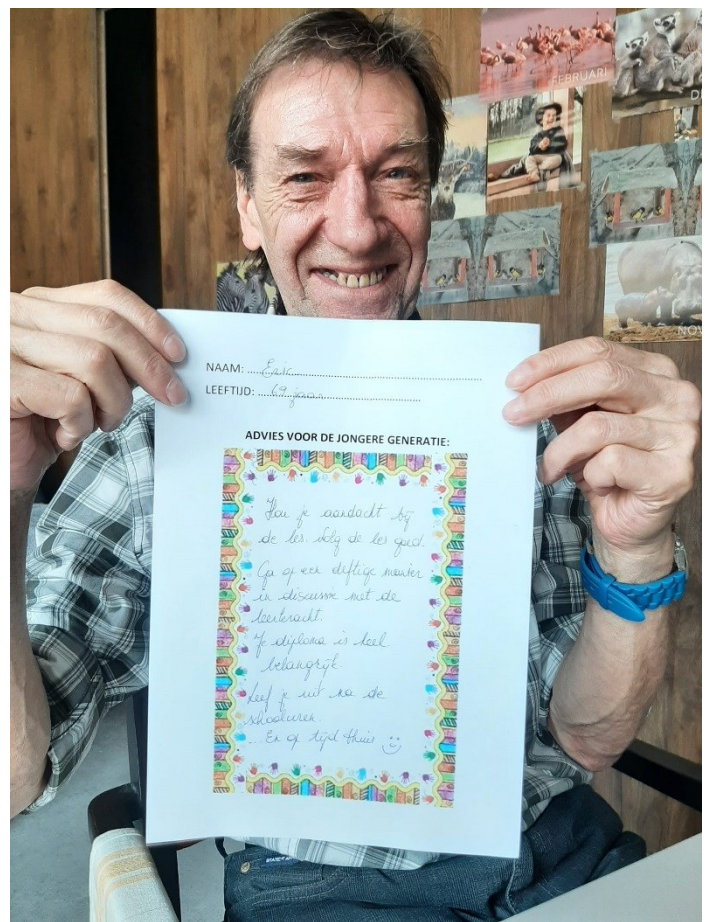 FEBRUARI
NAAM: Eric
LEEFTIJD: 69 jaar
ADVIES VOOR DE JONGERE GENERATIE:
Hou je aandacht bij
de les. Volg de les goed.
Ga op een deftige manier
in discussie met de
leerkracht.
Je diploma is heel
belangrijk.
Leef je uit na de
schooluren.
... En op tijd thuis